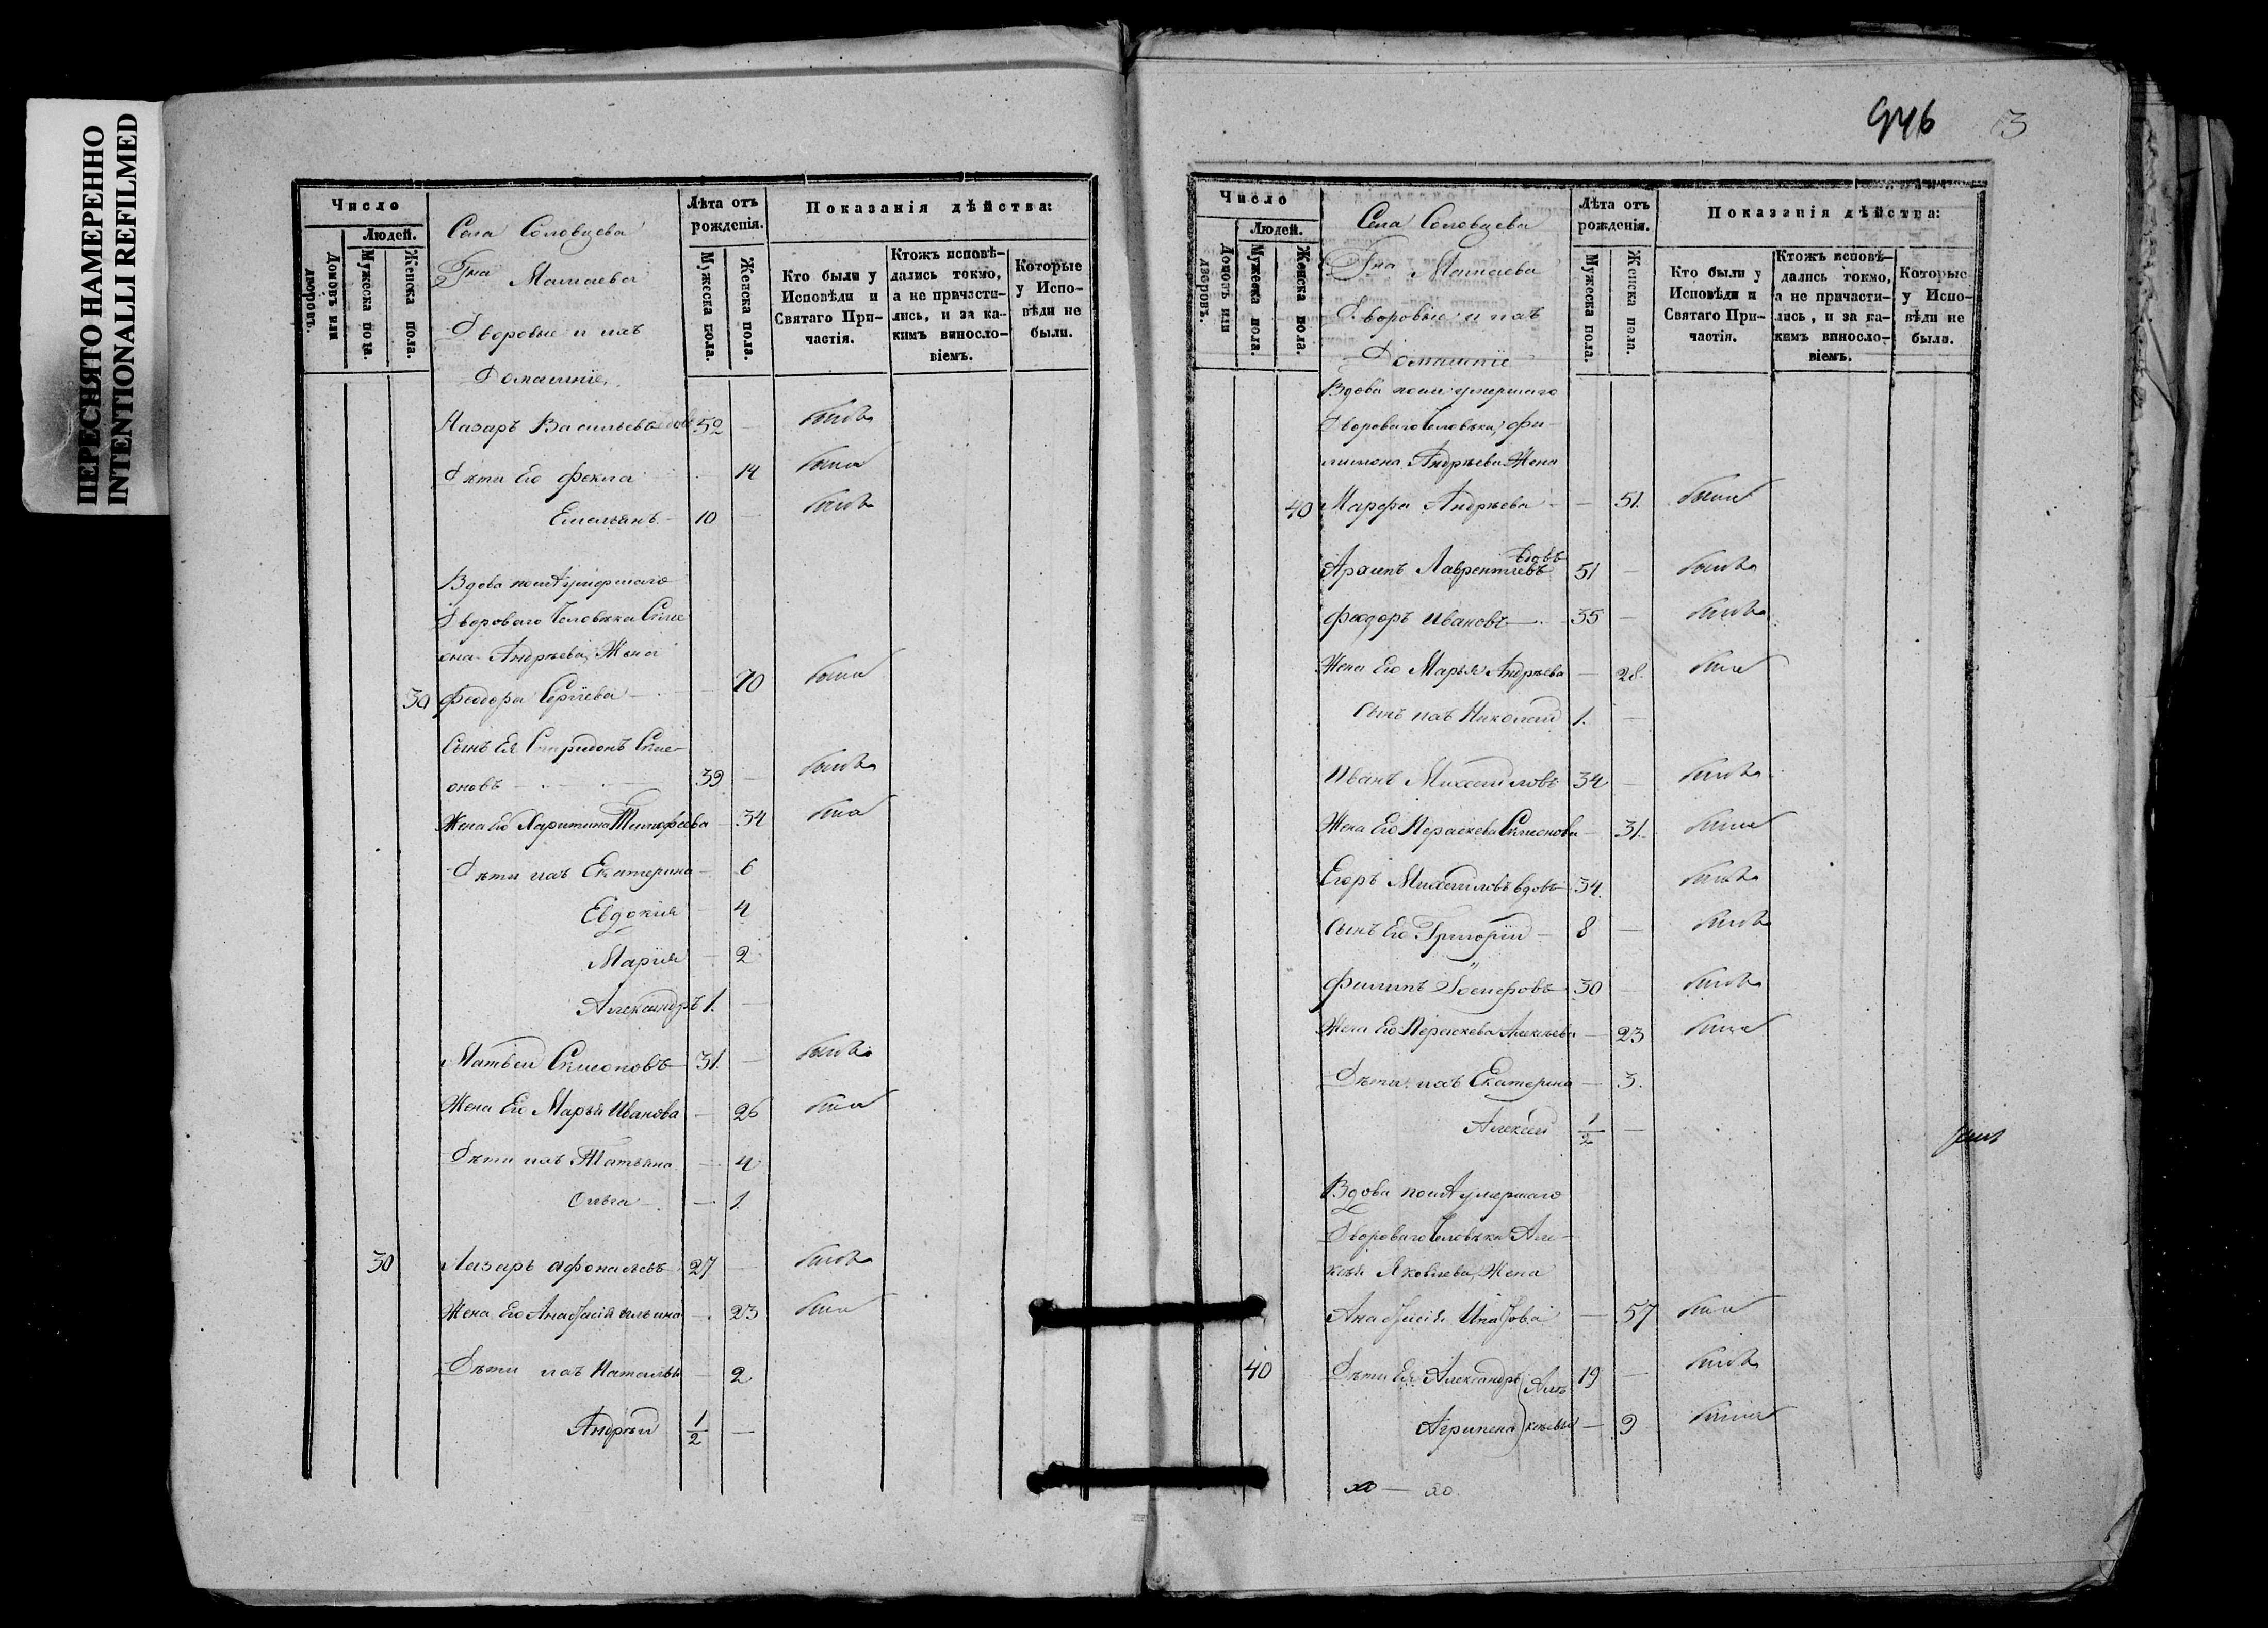 ПЕРЕСНЯТО НАМЕРЕННО
INTENTIONALLI REFILMED
Число
Людей.
Домовъ или дворовъ.
Мужеска пола.
Женска пола.
Села Соловцева
Гна Мамаева
Дворовые и ихъ
Домашніе
Лѣта отъ рожденія.
Мужеска пола.
Женска пола.
Показанія дѣйства:
Кто были у Исповѣди и Святаго Причастія.
Ктожъ исповѣ-
дались токмо,
а не причасти-
лись, и за ка-
кимъ винословіемъ.
Которые
у Испо-
вѣди не
были.
Назаръ Васильевъ вдовъ 52 — былъ
Дѣти Его Фекла — 14 была
Емельянъ — 10 — былъ
Вдова послѣ умершаго
Двороваго Человѣка Симе
она Андрѣева Жена
30 Феодора Сергіева — 70 была
Сынъ Ея Спиридонъ Симе-
оновъ — 39 — былъ
Жена Его Харитина Тимофеева — 34 была
Дѣти ихъ Екатерина — 6
Евдокия — 4
Мария — 2
Александръ 1. —
Матвей Симеоновъ 31. — былъ
Жена Его Марья Иванова — 26 была
Дѣти ихъ Татьяна — 4
Ольга — 1.
30 Лазарь Афонасьевъ 27 — былъ
Жена Его Анастасія Ильина — 23 была
Дѣти ихъ Наталья — 2
Андрей 1/2 —
946 3
Число
Людей.
Домовъ или дворовъ.
Мужеска пола.
Женска пола.
Села Соловцева
Гна Мамаева
Дворовые и ихъ
Домашніе
Лѣта отъ рожденія.
Мужеска пола.
Женска пола.
Показанія дѣйства:
Кто были у Исповѣди и Святаго Причастія.
Ктожъ исповѣ-
дались токмо,
а не причасти-
лись, и за ка-
кимъ винословіемъ.
Которые
у Испо-
вѣди не
были.
Вдова послѣ умершаго
Двороваго Человѣка, Фи-
лимона Андрѣева Жена
40 Марфа Андрѣева — 51. была
вдовъ
Архипъ Лаврентіевъ 51 — былъ
Феодоръ Ивановъ — 35 — былъ
Жена Его Марья Андрѣева — 28. была
Сынъ ихъ Николай 1. —
Иванъ Михайловъ 34 — былъ
Жена Его Пераскева Симеонова — 31. была
Егоръ Михайловъ вдовъ 34. былъ
Сынъ Его Григорій — 8 — былъ
Филипъ 30 — былъ
Жена Его Пераскева Алексѣева — 23 была
Дѣти ихъ Екатерина — 3.
Алексей 1/2 —
Вдова послѣ умершаго
Двороваго Человѣка Але-
ксѣя Яковлева, Жена
Анастасія — 57 была
40 Дѣти Ея Александръ Але 19 — былъ
Агрипена ксѣевы — 9 была